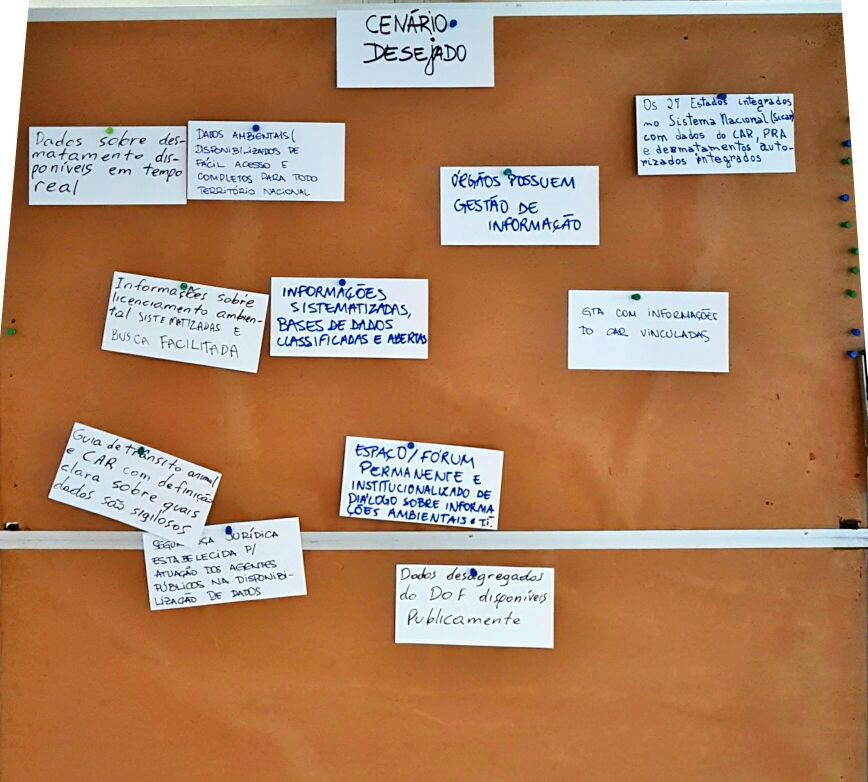 CENÁRIO
DESEJADO
Dados sobre des-
matamento dis-
poníveis em tempo
real
DADOS AMBIENTAIS
DISPONIBILIZADOS DE
FÁCIL ACESSO E
COMPLETOS PARA TODO
TERRITÓRIO NACIONAL
ÓRGÃOS POSSUEM
GESTÃO DE
INFORMAÇÃO
Os 27 Estados integrados
no Sistema Nacional (Sicar)
com dados do CAR, PRA
e desmatamentos auto-
rizados integrados
Informações sobre
licenciamento ambien-
tal SISTEMATIZADAS E
BUSCA FACILITADA
INFORMAÇÕES
SISTEMATIZADAS,
BASES DE DADOS
CLASSIFICADAS E ABERTAS
GTA COM INFORMAÇÕES
DO CAR VINCULADAS
Guia de trânsito animal
e CAR com definição
clara sobre quais
dados são sigilosos
ESPAÇO/FÓRUM
PERMANENTE E
INSTITUCIONALIZADO DE
DIÁLOGO SOBRE INFORMA
ÇÕES AMBIENTAIS e T.I.
JURÍDICA
ESTABELECIDA P/
ATUAÇÃO DOS AGENTES
PÚBLICOS NA DISPONIBI-
LIZAÇÃO DE DADOS
Dados desagregados
do DOF disponíveis
Publicamente